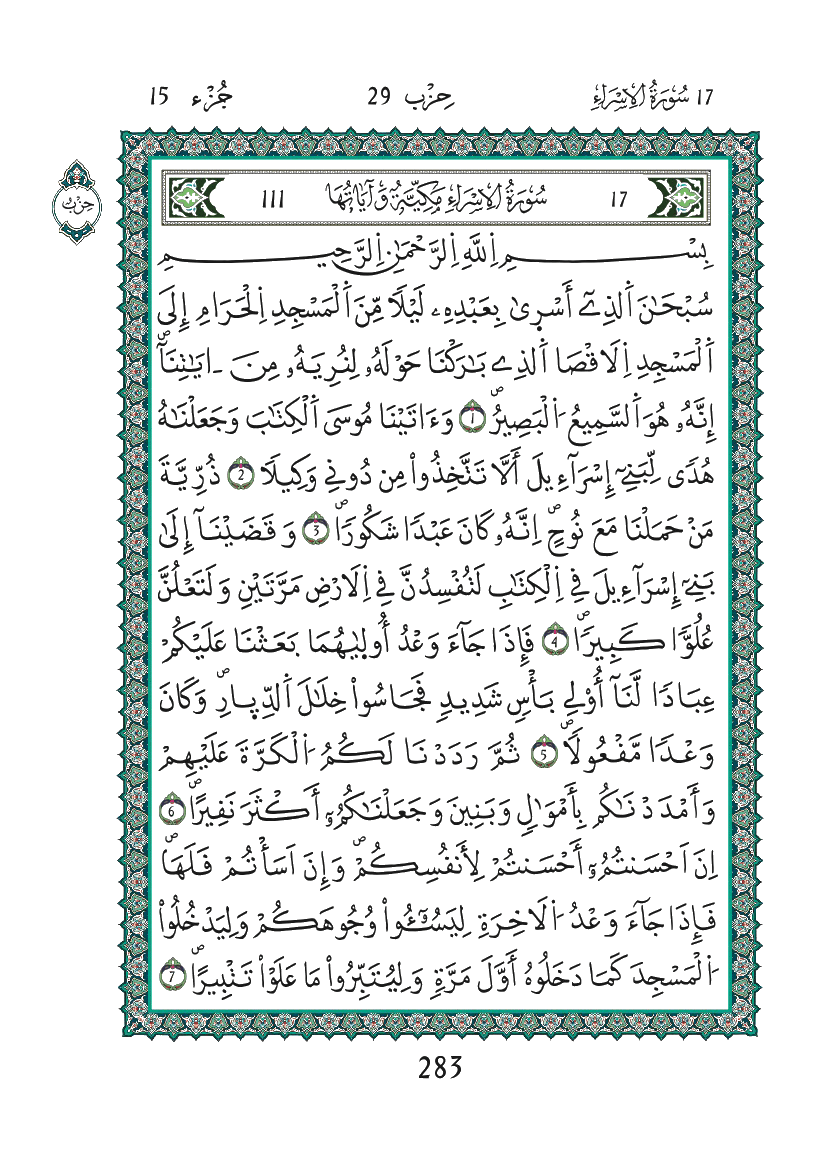 17 سُورَةُ الِاسْرَاءِ حِزْب 29 جُزْء 15
17 سُورَةُ الِاسْرَاءِ مَكِّيَّةٌ وَءَايَاتُهَا 111
حزب
بِسْمِ اِللَّهِ اِلرَّحْمَٰنِ اِلرَّحِيمِ
سُبْحَٰنَ اَلذِےٓ أَسْر۪ىٰ بِعَبْدِهِۦ لَيْلٗا مِّنَ اَلْمَسْجِدِ اِلْحَرَامِ إِلَى
اَلْمَسْجِدِ اِلَاقْصَا اَلذِے بَٰرَكْنَا حَوْلَهُۥ لِنُرِيَهُۥ مِنَ ـ ايَٰتِنَآۖ
إِنَّهُۥ هُوَ اَلسَّمِيعُ اُلْبَصِيرُۖ 1 وَءَاتَيْنَا مُوسَى اَلْكِتَٰبَ وَجَعَلْنَٰهُ
هُدٗى لِّبَنِےٓ إِسْرَآءِيلَ أَلَّا تَتَّخِذُواْ مِن دُونِے وَكِيلٗا 2 ذُرِّيَّةَ
مَنْ حَمَلْنَا مَعَ نُوحٍۖ اِنَّهُۥ كَانَ عَبْدٗا شَكُورٗاۖ 3 وَقَضَيْنَآ إِلَىٰ
بَنِےٓ إِسْرَآءِيلَ فِے اِلْكِتَٰبِ لَتُفْسِدُنَّ فِے اِلَارْضِ مَرَّتَيْنِ وَلَتَعْلُنَّ
عُلُوّٗا كَبِيرٗاۖ 4 فَإِذَا جَآءَ وَعْدُ أُول۪ىٰهُمَا بَعَثْنَا عَلَيْكُمْ
عِبَادٗا لَّنَآ أُوْلِے بَأْسٖ شَدِيدٖ فَجَاسُواْ خِلَٰلَ اَلدِّي۪ارِۖ وَكَانَ
وَعْدٗا مَّفْعُولٗاۖ 5 ثُمَّ رَدَدْنَا لَكُمُ اُلْكَرَّةَ عَلَيْهِمْ
وَأَمْدَدْنَٰكُم بِأَمْوَٰلٖ وَبَنِينَ وَجَعَلْنَٰكُمُۥٓ أَكْثَرَ نَفِيراًۖ 6
اِنَ اَحْسَنتُمُۥٓ أَحْسَنتُمْ لِأَنفُسِكُمْۖ وَإِنَ اَسَأْتُمْ فَلَهَاۖ
فَإِذَا جَآءَ وَعْدُ اُلَاخِرَةِ لِيَسُـُٔواْ وُجُوهَكُمْ وَلِيَدْخُلُواْ
اُلْمَسْجِدَ كَمَا دَخَلُوهُ أَوَّلَ مَرَّةٖ وَلِيُتَبِّرُواْ مَا عَلَوْاْ تَتْبِيراًۖ 7
283